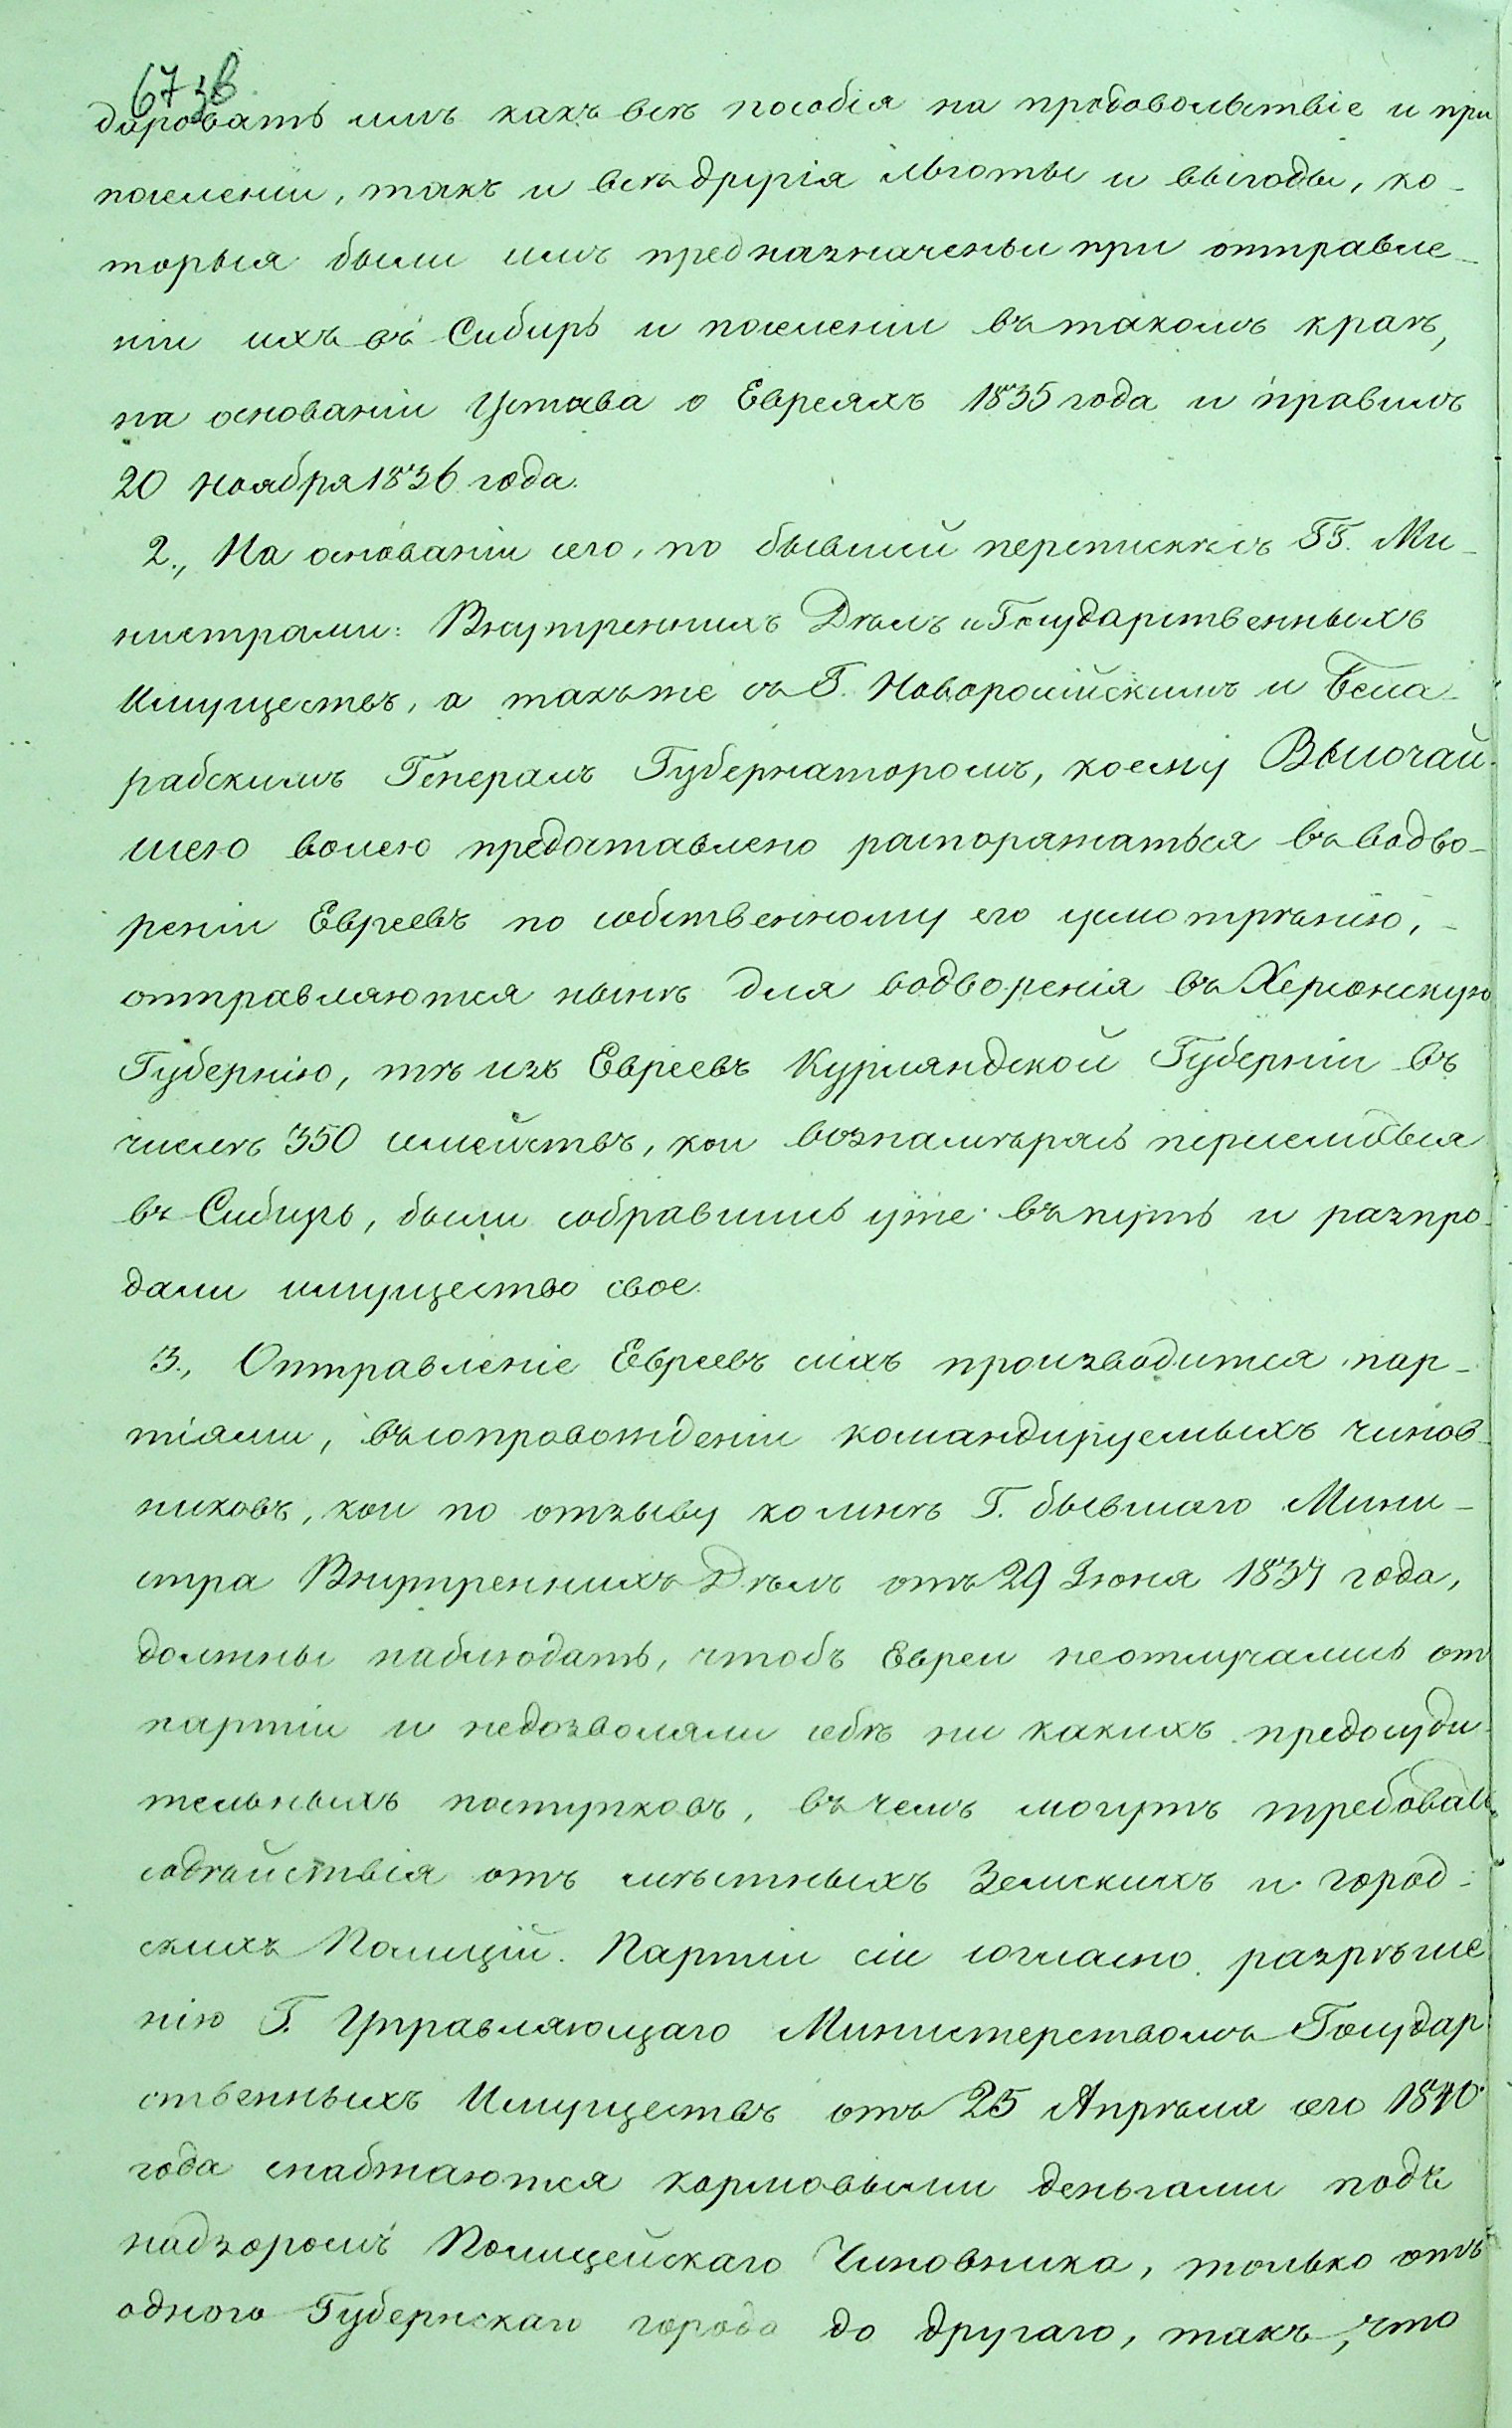 67 зв
даровать имъ какъ всѣ пособія на продовольствіе и при
поселеніи, такъ и всѣ другія льготы и выгоды, ко-
торыя были имъ предназначены при отправле-
ніи ихъ въ Сибирь и поселеніи въ такомъ краѣ,
на основаніи Устава о Евреяхъ 1835 года и правилъ
20 Ноября 1836 года.
2., На основаніи сего, по бывшей перепискѣ съ ГГ. Ми-
нистрами: Внутреннихъ Дѣлъ и Государственныхъ
Имуществъ, а такъ же съ Г. Новороссійскимъ и Бесса-
рабскимъ Генералъ Губернаторомъ, коему Высочай-
шею волею предоставлено распоряжаться въ водво-
реніи Евреевъ по собственному его усмотрѣнію, -
отправляются нынѣ для водворенія въ Херсонскую
Губернію, тѣ изъ Евреевъ Курляндской Губерніи въ
числѣ 350 семействъ, кои вознамѣрясь переселиться
въ Сибирь, были собравшись уже въ путь и разпро-
дали имущество свое.
3., Отправленіе Евреевъ сихъ производится пар-
тіями, въ сопровожденіи командируемыхъ чинов-
никовъ, кои по отзыву ко мнѣ Г. бывшаго Мини-
стра Внутреннихъ Дѣлъ отъ 29 Іюня 1837 года,
должны наблюдать, чтобъ Евреи неотлучались от
партіи и недозволяли себѣ ни какихъ предосуди-
тельныхъ поступковъ, въ чемъ могутъ требовать
содѣйствія отъ мѣстныхъ Земскихъ и город-
скихъ Полицій. Партіи сіи согласно разрѣше
нію Г. Управляющаго Министерствомъ Государ
ственныхъ Имуществъ отъ 25 Апрѣля сего 1840
года снабжаются кормовыми деньгами подъ
надзоромъ Полицейскаго Чиновника, только отъ
одного Губернскаго города до другаго, такъ, что